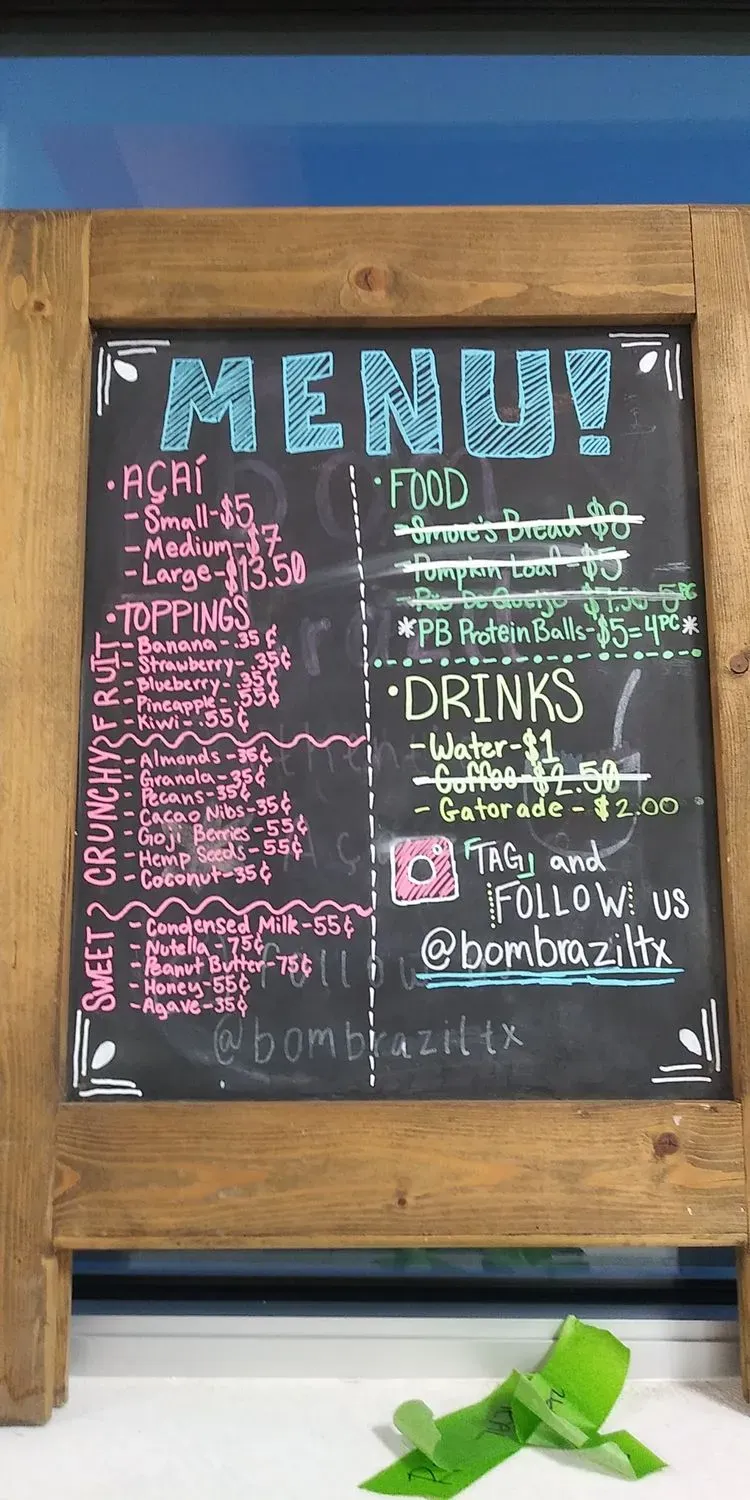 MENU!
• AÇAÍ
- Small-$5
- Medium-$7
- Large-$13.50
• TOPPINGS
FRUIT
- Banana - .35¢
- Strawberry - .35¢
- Blueberry - .35¢
- Pineapple - .55¢
- Kiwi - .55¢
CRUNCHY
- Almonds - 35¢
- Granola - 35¢
- Pecans - 35¢
- Cacao Nibs - 35¢
- Goji Berries - 55¢
- Hemp Seeds - 55¢
- Coconut - 35¢
SWEET
- Condensed Milk - 55¢
- Nutella - 75¢
- Peanut Butter - 75¢
- Honey - 55¢
- Agave - 35¢
follow
@bombraziltx
• FOOD
- Smore's Bread - $8
- Pumpkin Loaf - $5
- Pão De Queijo $7.50 5PC
*PB Protein Balls-$5=4PC*
• DRINKS
- Water-$1
- Coffee-$2.50
- Gatorade - $2.00
「TAG」 and
FOLLOW us
@bombraziltx